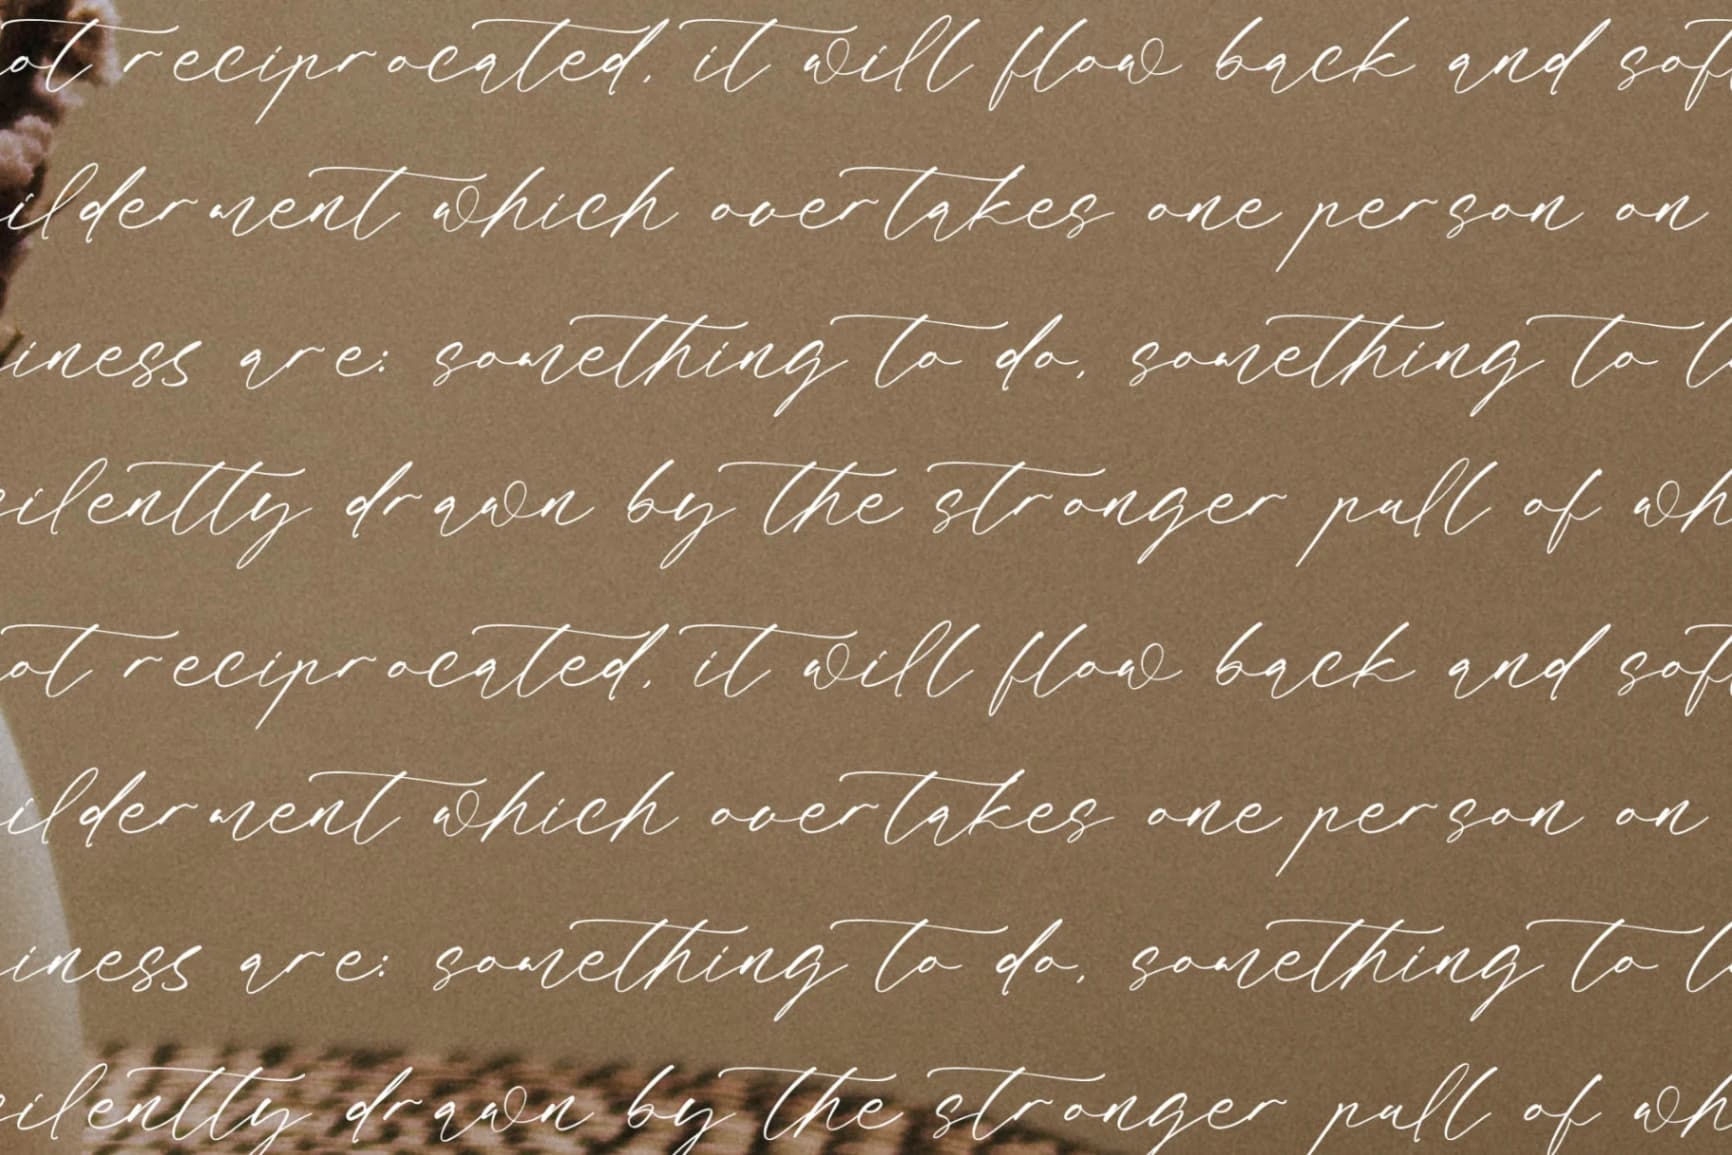 ot reciprocated, it will flow back and sof
ilderment which overtakes one person on
iness are: something to do, something to l
silentty drawn by the stronger pull of wh
ot reciprocated, it will flow back and sof
ilderment which overtakes one person on
iness are: something to do, something to l
silentty drawn by the stronger pull of wh